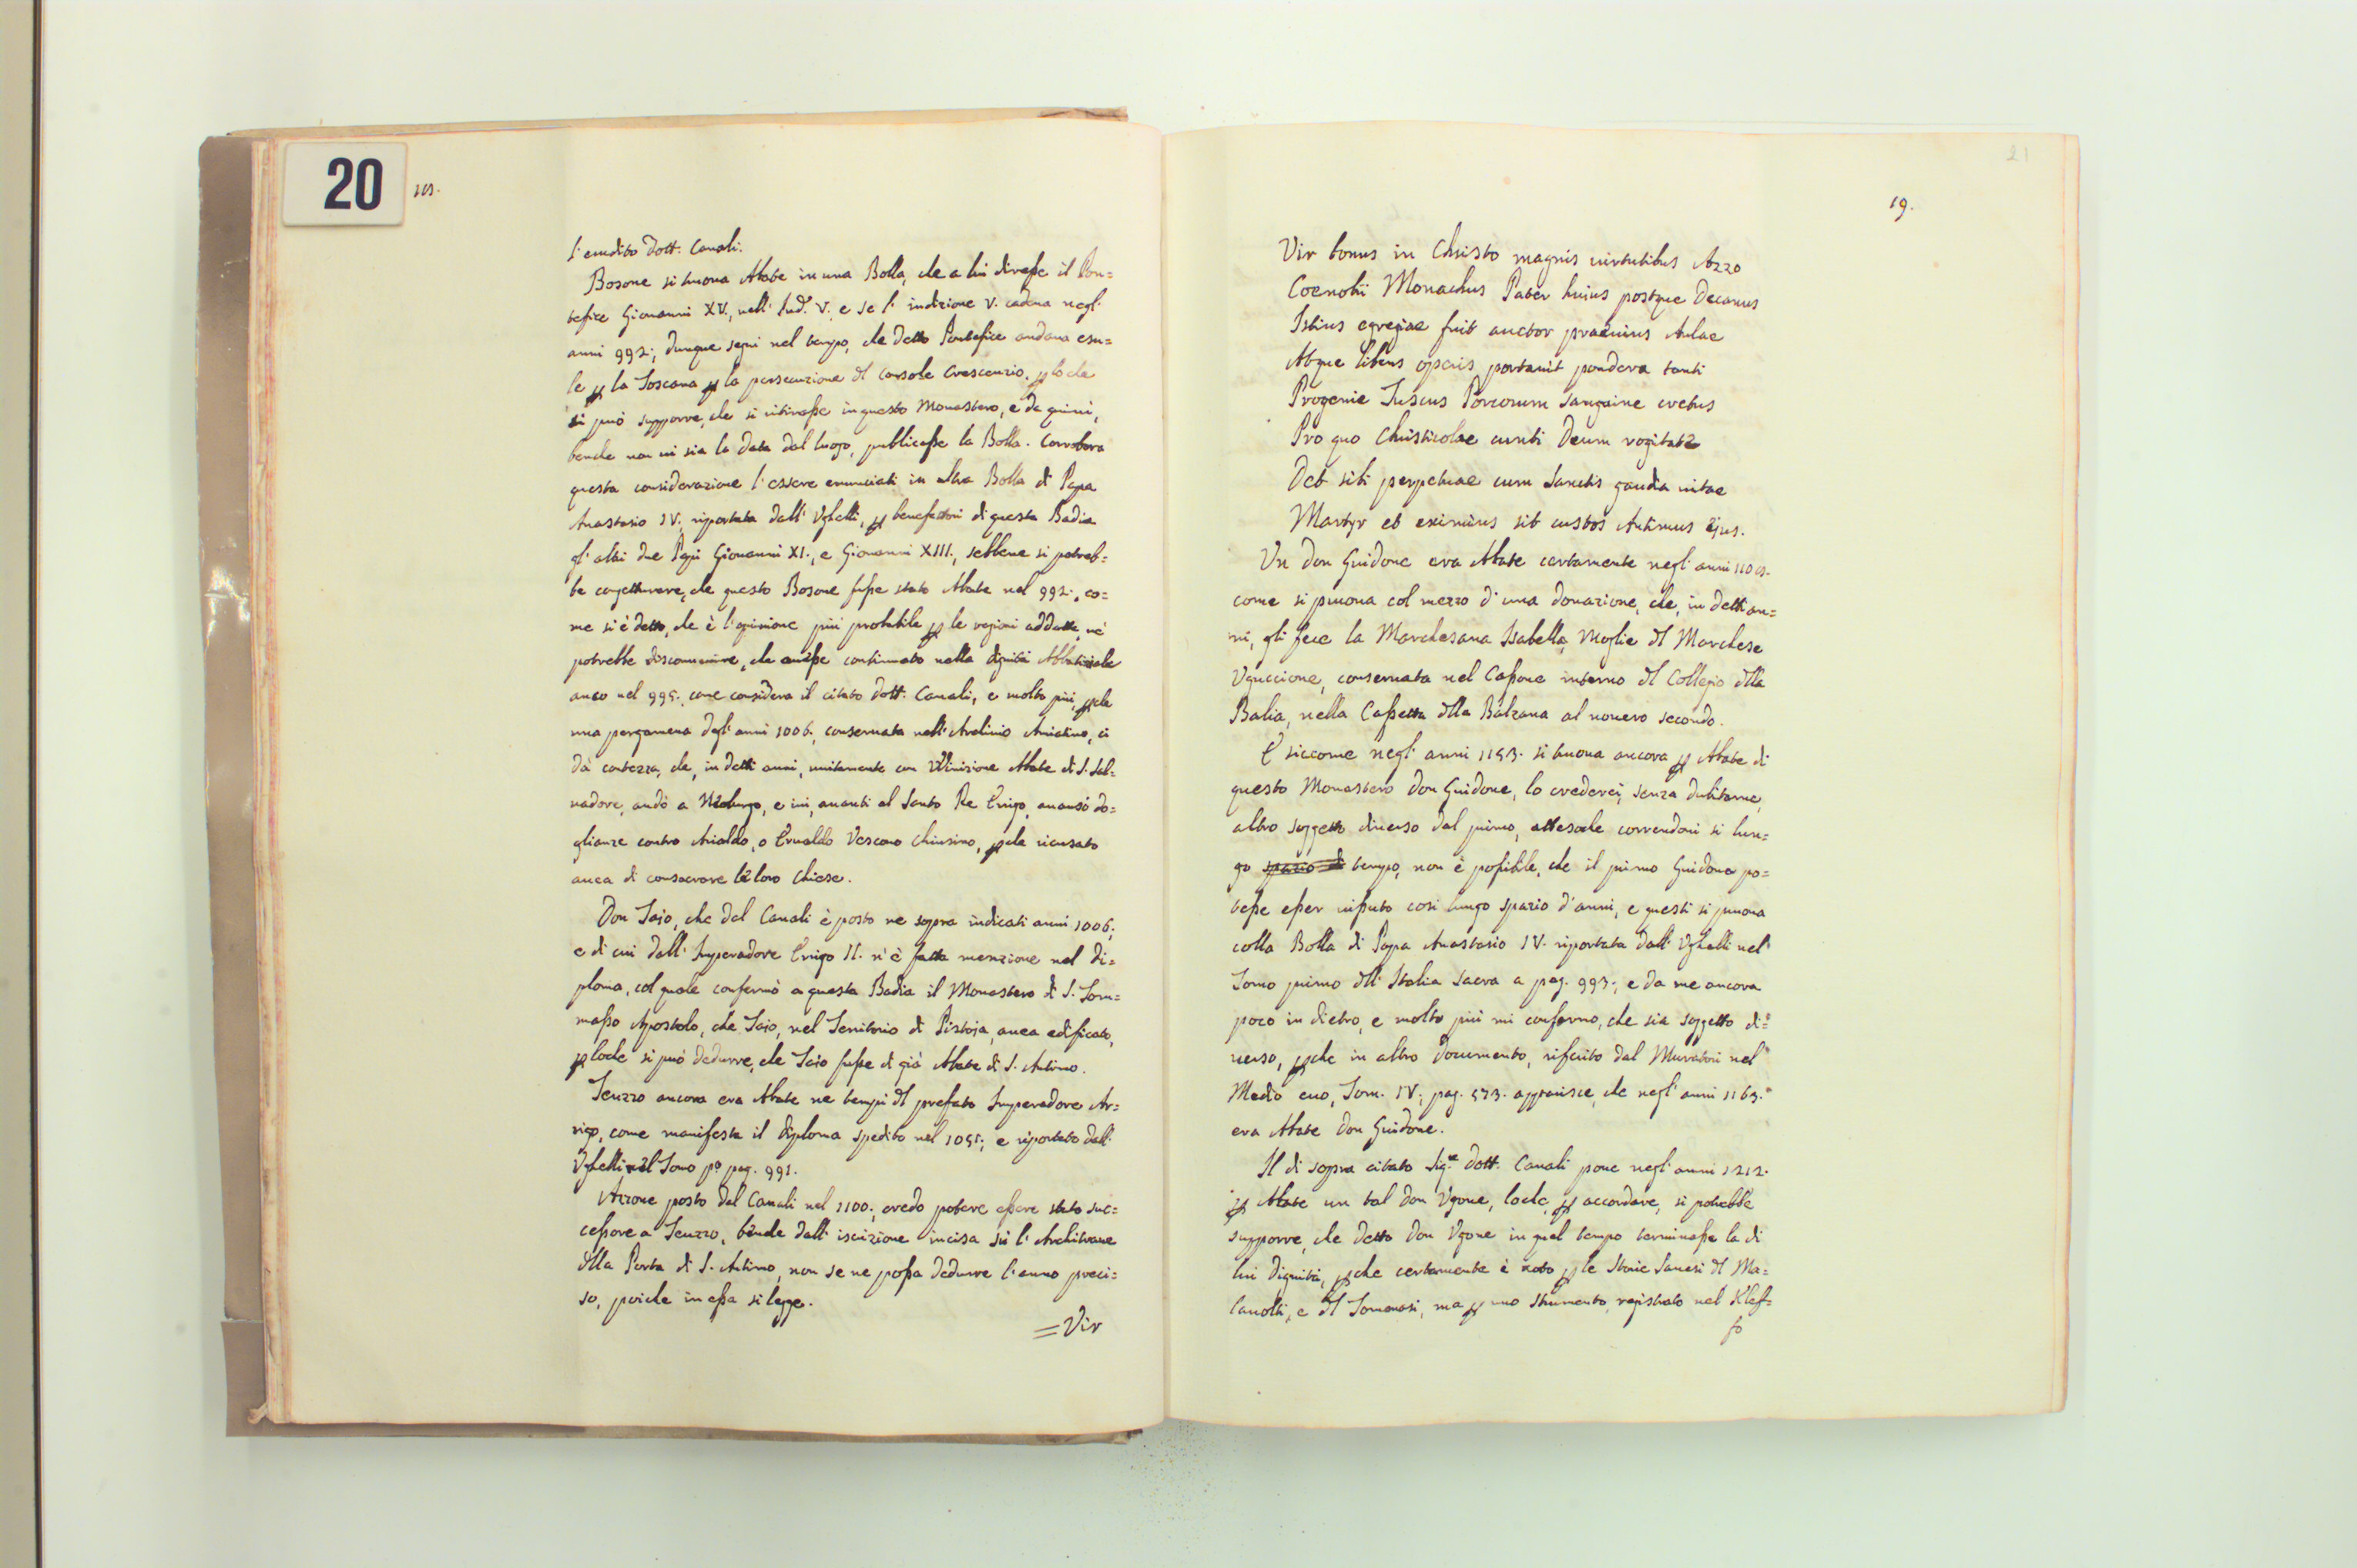 20
18.
l'erudito Dott. Canali.
Bosone si truova Abate in una Bolla, che a lui diresse il Pon=
tefice Giovanni XV., nell' Ind.e V., e se l' indizione V. cadeva negl'
anni 992:, dunque segui nel tempo, che detto Pontefice andava esu=
le p la Toscana p la persecuzione dl console Crescenzio. plo che
si può supporre, che si ritirasse in questo Monastero, e da quivi,
benche non vi sia la data dal luogo, publicasse la Bolla. Corrobora
questa considerazione l'essere enunciati in altra Bolla di Papa
Anastasio IV. riportata dall' Vghelli, p benefattori di questa Badia
gl' altri due Papi Giovanni XI., e Giovanni XIII., sebbene si potreb=
be congetturare, che questo Bosone fusse stato Abate nel 992., co=
me si è detto, che è l'opinione più probabile p le ragioni addotte, nè
potrebbe disconvenire, che avesse continuato nella dignità Abbaziale
anco nel 995. come considera il citato Dott. Canali, e molto più, pche
una pergamena degl' anni 1006., conservata nell' Archivio Amiatino, ci
dà contezza, che, in detti anni, unitamente con Winizione Abate di S. Sal=
vadore, andò a Nieburgo, e ivi, avanti al Santo Re Errigo, avanzò do=
glianze contro Arialdo, o Ernaldo Vescovo Chiusino, pche ricusato
avea di consacrare le loro Chiese.
Don Taio, che dal Canali è posto ne sopra indicati anni 1006.,
e di cui dall' Imperadore Errigo II. n'è fatta menzione nel di=
ploma, col quale confermò a questa Badia il Monastero di S. Tom=
masso Apostolo, che Taio, nel Territorio di Pistoja, avea edificato,
ploche si può dedurre, che Taio fusse di già Abate di S. Antimo.
Teuzzo ancora era Abate ne tempi dl prefato Imperadore Ar=
rigo, come manifesta il diploma spedito nel 1051:, e riportato dall'
Vghelli nel Tomo p.o pag. 991.
Azzone posto dal Canali nel 1100., credo potere essere stato suc=
cessore a Teuzzo, benche dall' iscrizione incisa sù l' Architrave
dlla Porta di S. Antimo, non se ne possa dedurre l'anno preci=
so, poiche in essa si legge.
= Vir
21
19.
Vir bonus in Christo magnis virtutibus Azzo
Coenobii Monachus Pater huius postque Decanus
Istius egregiae fuit auctor praevius Aulae
Atque libens operis portavit pondera tanti
Progenie Tuscus Porcorum sanguine cretus
Pro quo Christicolae cuncti Deum rogitate
Det sibi perpetuae cum Sanctis gaudia vitae
Martyr et eximius sit custos Antimus ejus.
Un Don Guidone era Abate certamente negl' anni 1108.
come si pruova col mezzo d'una donazione, che, in detti an=
ni, gli fece la Marchesana Isabella, Moglie dl Marchese
Uguccione, conservata nel Cassone interno dl Collegio dlla
Balia, nella Cassetta dlla Balzana al novero secondo.
E siccome negl' anni 1153. si truova ancora p Abate di
questo Monastero Don Guidone, lo crederei, senza dubitarne,
altro soggetto diverso dal primo, attesoche correndovi si lun=
go spazio di tempo, non è possibile, che il primo Guidone po=
tesse esser vissuto cosi lungo spazio d'anni, e questi si pruova
colla Bolla di Papa Anastasio IV. riportata dall' Vghelli nel
Tomo primo dll' Italia Sacra a pag. 993., e da me ancora
poco in dietro, e molto più mi confermo, che sia soggetto di=
verso, pche in altro Documento, riferito dal Muratori nel
Medio evo, Tom. IV., pag. 573. apparisce, che negl' anni 1163.
era Abate Don Guidone.
Il di sopra citato Sig.re Dott. Canali pone negl' anni 1212.
p Abate un tal Don Vgone, loche, p accordare, si potrebbe
supporre, che detto Don Vgone in quel tempo terminasse la di
lui Dignità, pche certamente è noto p le Storie Sanesi dl Ma=
lavolti, e dl Tommasi, ma p uno Strumento, registrato nel Klef=
fo